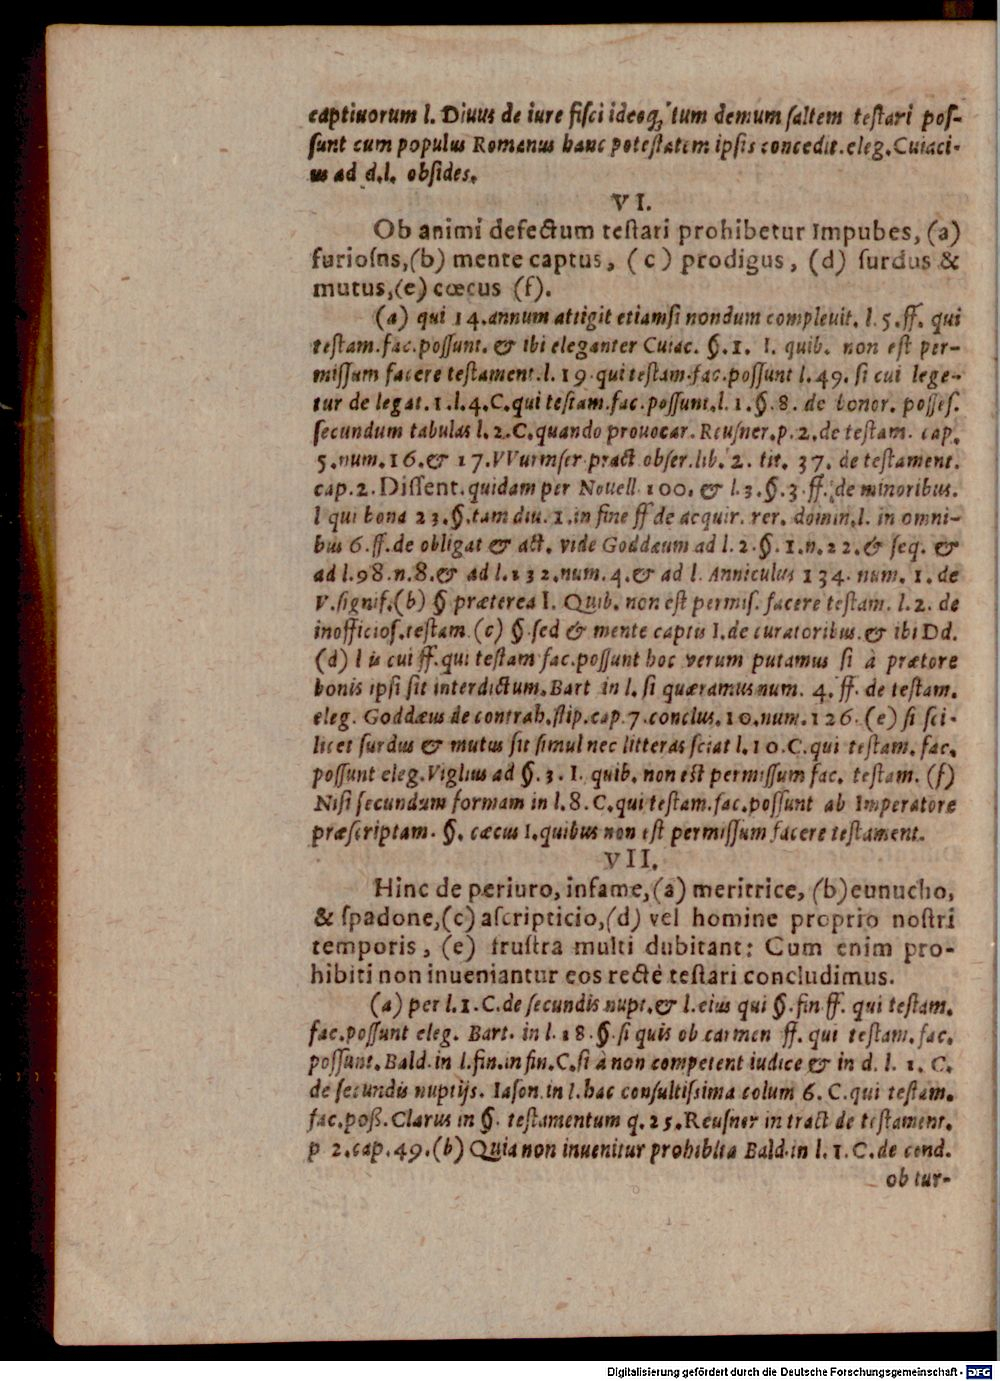 captiuorum l. Diuus de iure fisci ideoq́; tum demum ſaltem teſtari poſ-
ſunt cum populus Romanus hanc poteſtatem ipſis concedit. eleg. Cuiaci-
us ad d.l. obſides.
VI.
Ob animi defectum teſtari prohibetur Impubes, (a)
furioſus,(b) mente captus, (c) prodigus, (d) ſurdus &
mutus,(e) cœcus (f).
(a) qui 14.annum attigit etiamſi nondum compleuit. l. 5.ff. qui
teſtam.fac.poſſunt. & ibi eleganter Cuiac. §.1. I. quib. non eſt per-
miſſum facere teſtament.l. 19.qui teſtam.fac.poſſunt l. 49. ſi cui lege-
tur de legat.1.l.4.C.qui teſtam.fac.poſſunt.l. 1.§.8. de bonor. poſſeſ.
ſecundum tabulas l.2.C.quando prouocar. Reuſner.p.2.de teſtam. cap.
5.num.16.& 17.VVurmſer pract obſer.lib. 2. tit. 37. de teſtament.
cap.2. Diſſent.quidam per Nouell. 100. & l.3.§.3.ff. de minoribus.
l qui bona 23.§.tam diu. 1.in fine ff de acquir. rer. domin.l. in omni-
bus 6.ff.de obligat & act. vide Goddæum ad l.2.§.1.n.22.& ſeq. &
ad l.98.n.8.& ad l.132.num.4.& ad l. Anniculus 134. num. 1. de
V.ſignif.(b) § præterea I. Quib. non eſt permiſ. facere teſtam. l.2. de
inofficioſ.teſtam.(c) §.ſed & mente captus I.de curatoribus.& ibi Dd.
(d) l is cui ff.qui teſtam fac.poſſunt hoc verum putamus ſi à prætore
bonis ipſi ſit interdictum.Bart in l. ſi quæramus num. 4. ff. de teſtam.
eleg. Goddæus de contrah.ſtip.cap.7.concluſ.10.num.126.(e) ſi ſci-
licet ſurdus & mutus ſit ſimul nec litteras ſciat l.10.C.qui teſtam. fac.
poſſunt eleg.Viglius ad §.3. I. quib. non eſt permiſſum fac. teſtam. (f)
Niſi ſecundum formam in l.8.C.qui teſtam.fac.poſſunt ab Imperatore
præſcriptam. §. cæcus I.quibus non eſt permiſſum facere teſtament.
VII.
Hinc de periuro, infame,(a) meritrice, (b)eunucho,
& ſpadone,(c) aſcripticio,(d) vel homine proprio noſtri
temporis, (e) fruſtra multi dubitant: Cum enim pro-
hibiti non inueniantur eos rectè teſtari concludimus.
(a) per l.1.C.de ſecundis nupt.& l.eius qui §.fin ff. qui teſtam.
fac.poſſunt eleg. Bart. in l.18.§.ſi quis ob carmen ff. qui teſtam. fac.
poſſunt. Bald.in l.fin.in fin.C.ſi à non competent iudice & in d. l. 1. C.
de ſecundis nuptijs. Iaſon.in l. hac conſultiſsima colum 6. C.qui teſtam.
fac.poß.Clarus in §. teſtamentum q.25.Reuſner in tract de teſtament.
p 2.cap.49.(b) Quia non inuenitur prohibita Bald.in l.1.C.de cond.
ob tur-
Digitalisierung gefördert durch die Deutsche Forschungsgemeinschaft - DFG